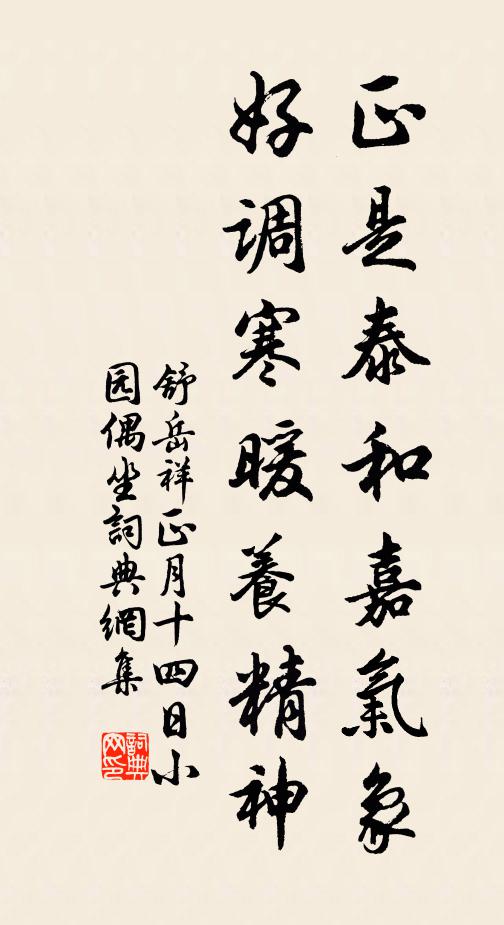 正是泰和嘉氣象
好调寒暖養精神
舒岳祥正月十四日小
园偶坐詞典網集
詞典
网印